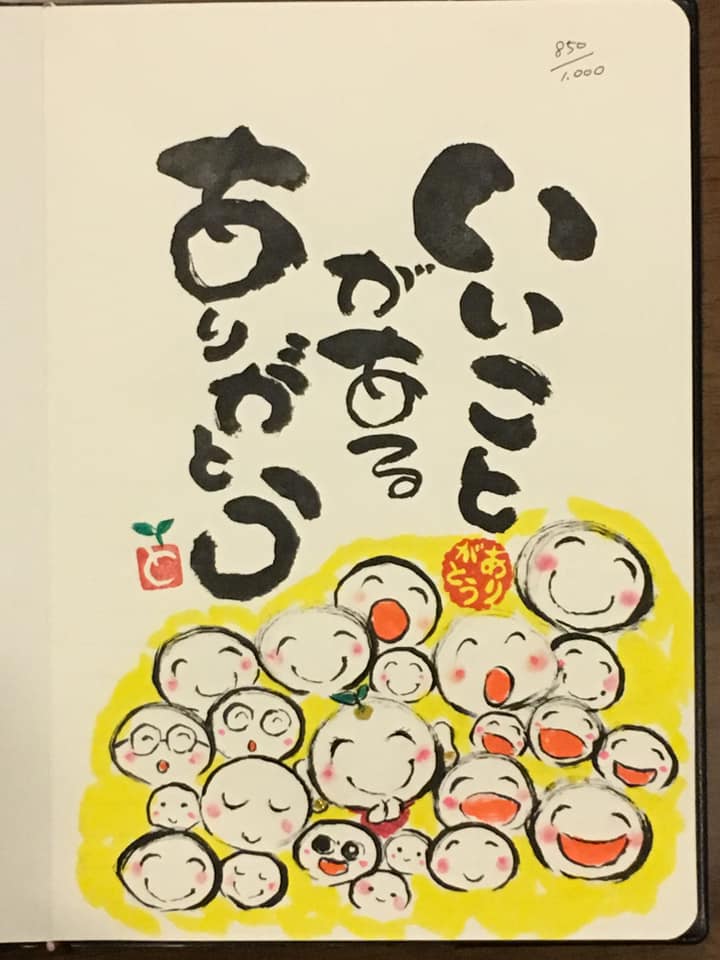 850/1.000
いいこと
がある
ありがとう
と
ありがとう